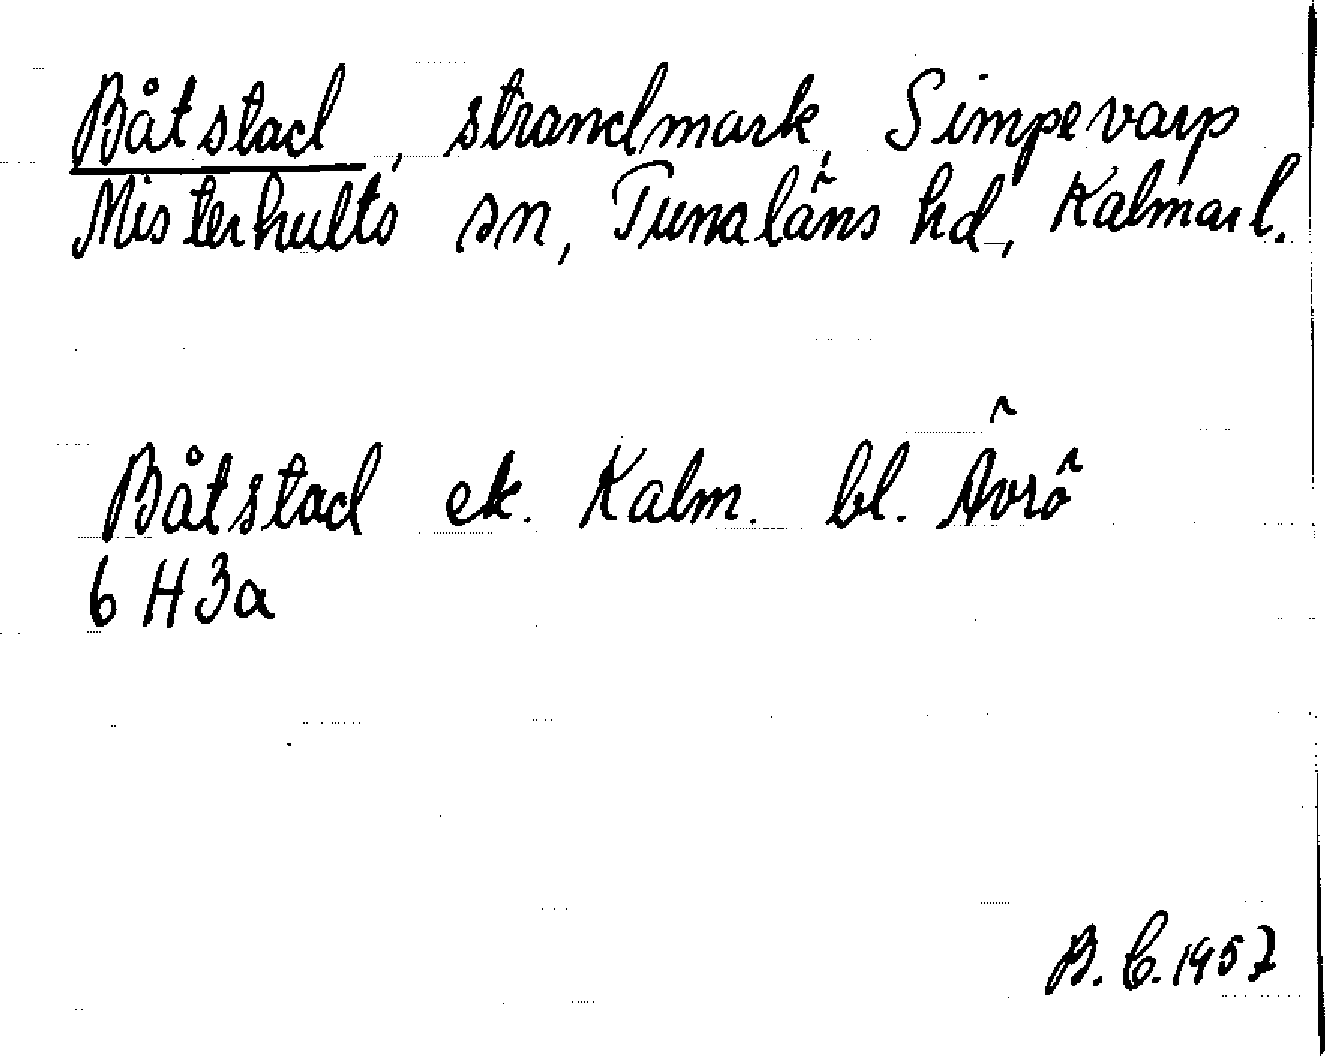 Båtstad, strandmark, Simpevarp
Misterhults sn, Tunaläns hd, Kalmar l.
Båtstad ek. Kalm. bl. Ävrö
6 H 3a
B. C. 1957